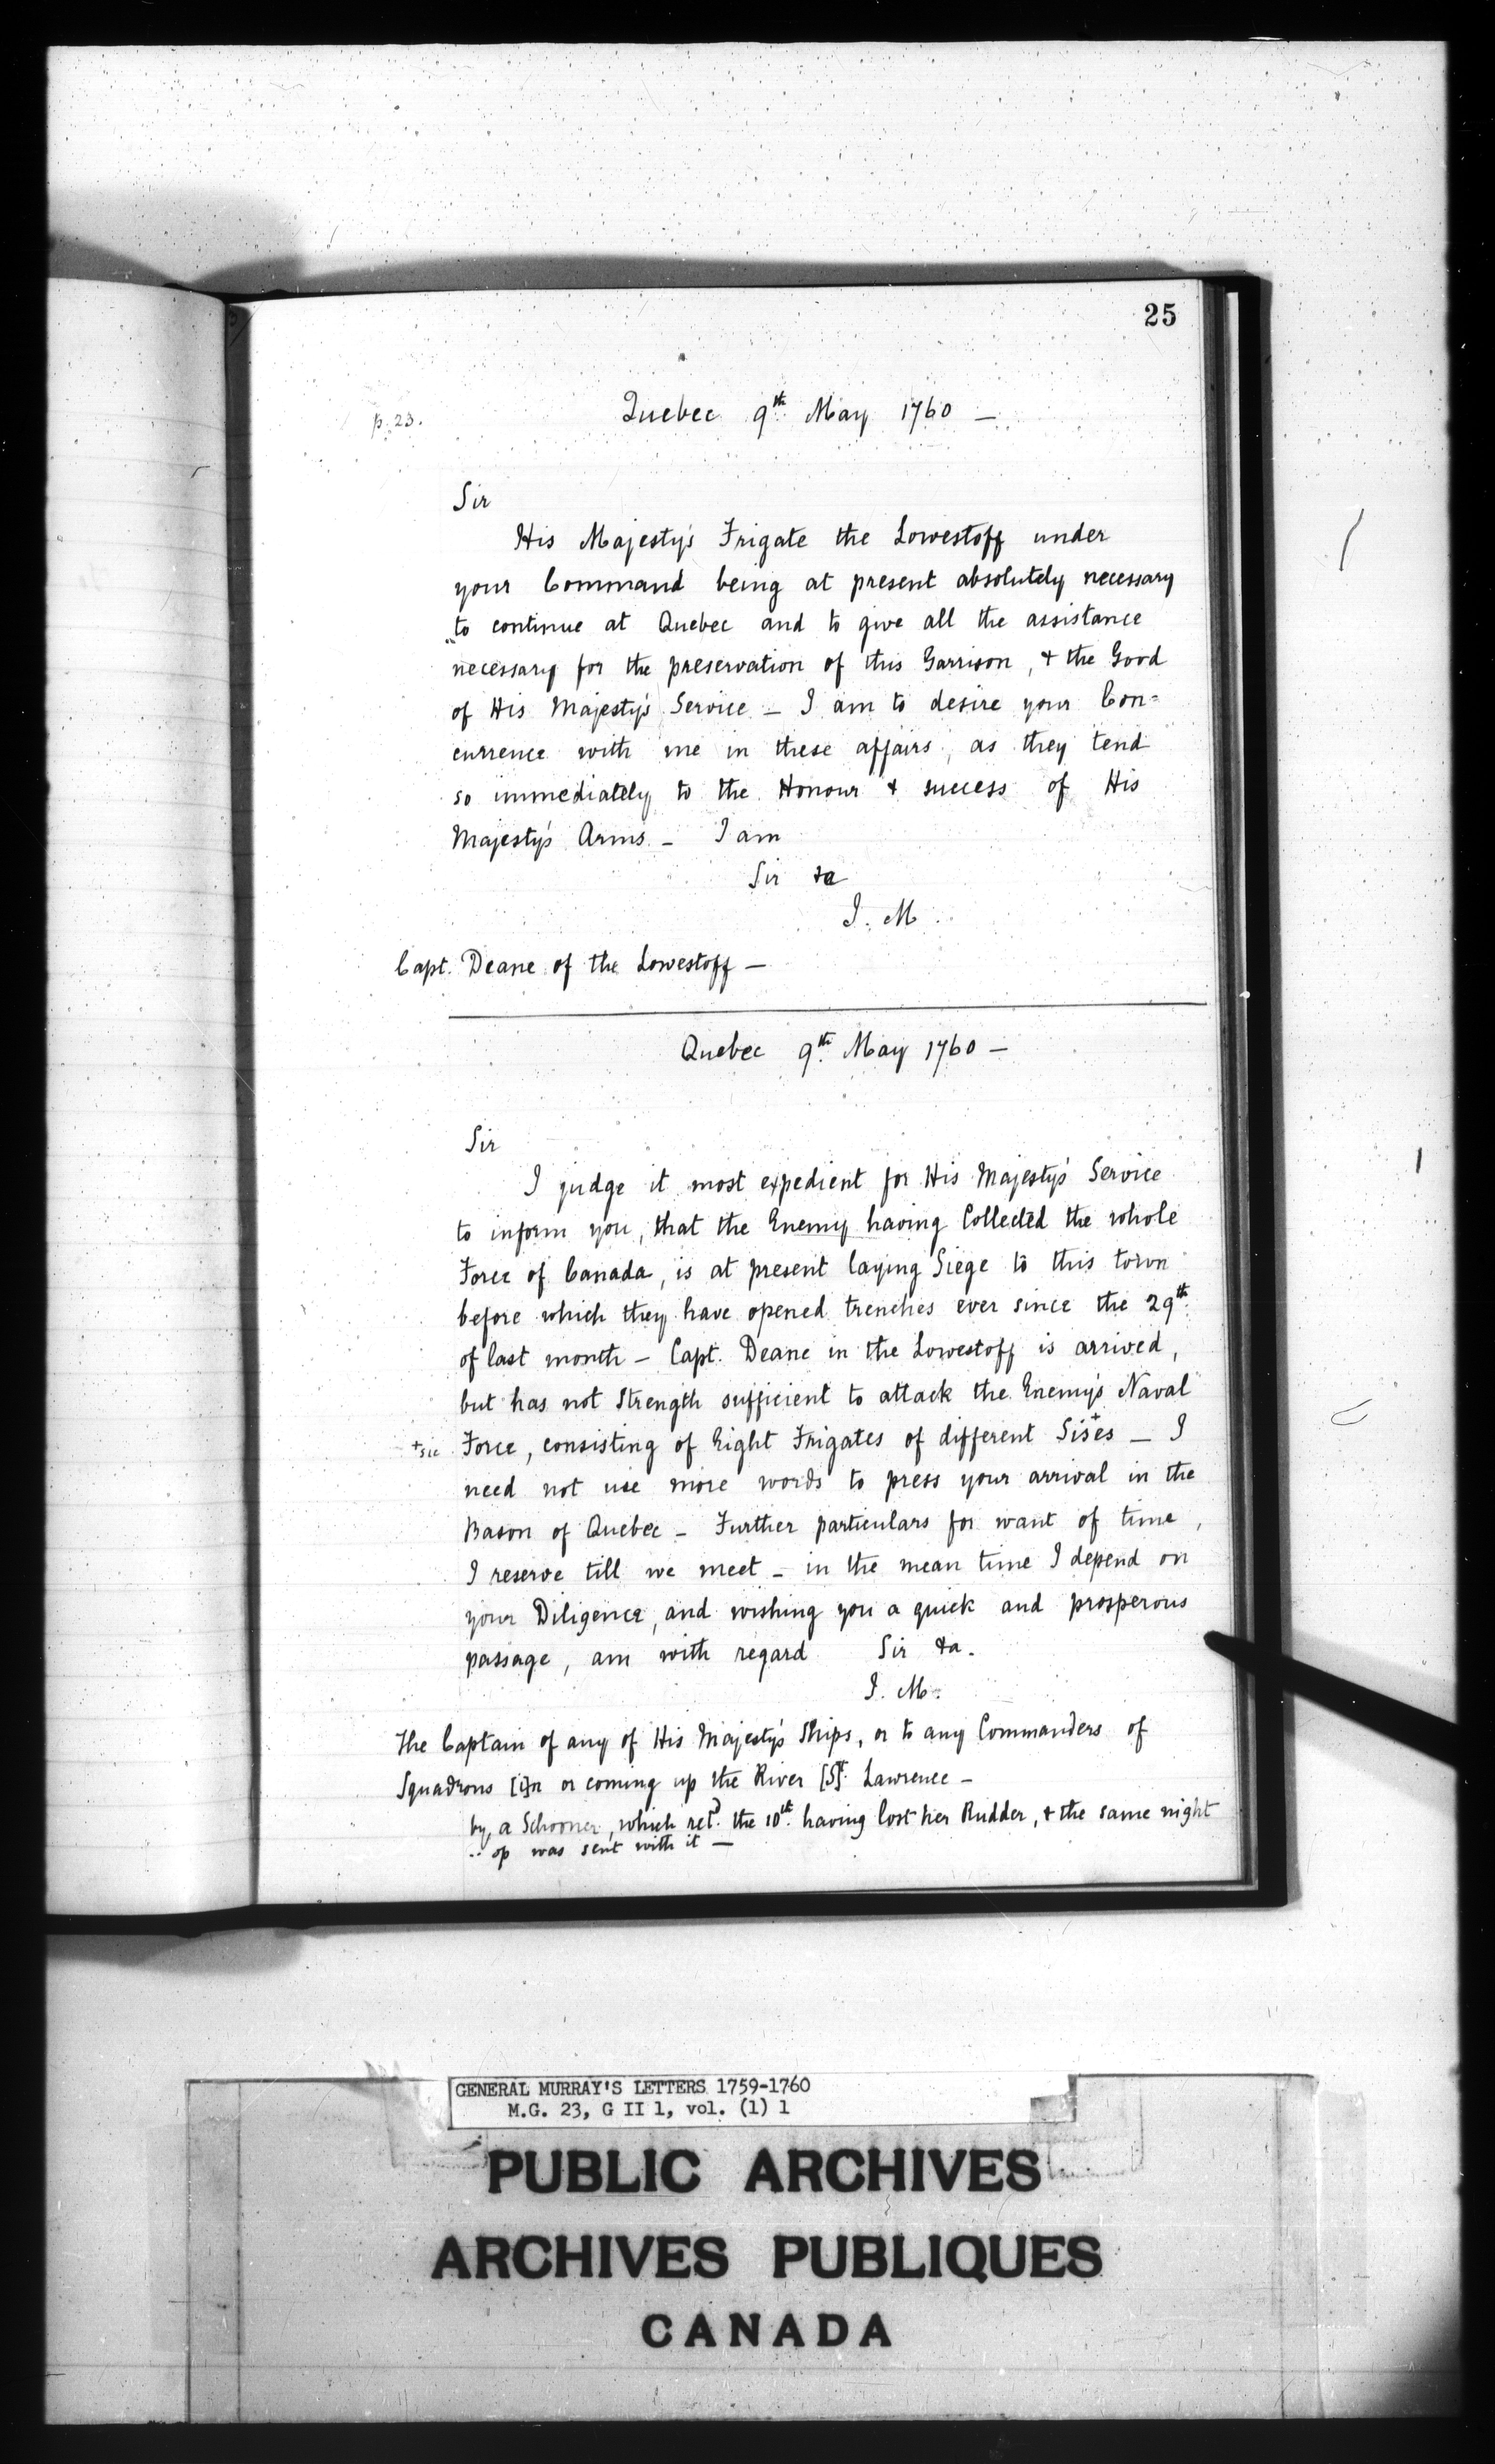 25
p. 23.
Quebec 9th May 1760 —
Sir
His Majesty's Frigate the Lowestoff under
your Command being at present absolutely necessary
to continue at Quebec and to give all the assistance
necessary for the preservation of this Garrison, & the Good
of His Majesty's Service — I am to desire your Con=
currence with me in these affairs, as they tend
so immediately to the Honour & success of His
Majesty's Arms — I am
Sir &a
J. M.
Capt. Deane of the Lowestoff —
Quebec 9th May 1760 —
Sir
I judge it most expedient for His Majesty's Service
to inform you, that the Enemy having Collected the whole
Force of Canada, is at present laying Siege to this town
before which they have opened trenches ever since the 29th
of last month — Capt. Deane in the Lowestoff is arrived,
but has not Strength sufficient to attack the Enemy's Naval
+sic Force, consisting of Eight Frigates of different Sis+es — I
need not use more words to press your arrival in the
Bason of Quebec — Further particulars for want of time,
I reserve till we meet — in the mean time I depend on
your Diligence, and wishing you a quick and prosperous
passage, am with regard Sir &a.
J. M.
The Captain of any of His Majesty's Ships, or to any Commanders of
Squadrons [i]n or coming up the River [St]. Lawrence —
by a Schooner, which retd. the 10th. having lost her Rudder, & the same night
.. op was sent with it —
GENERAL MURRAY'S LETTERS 1759-1760
M.G. 23, G II 1, vol. (1) 1
PUBLIC ARCHIVES
ARCHIVES PUBLIQUES
CANADA